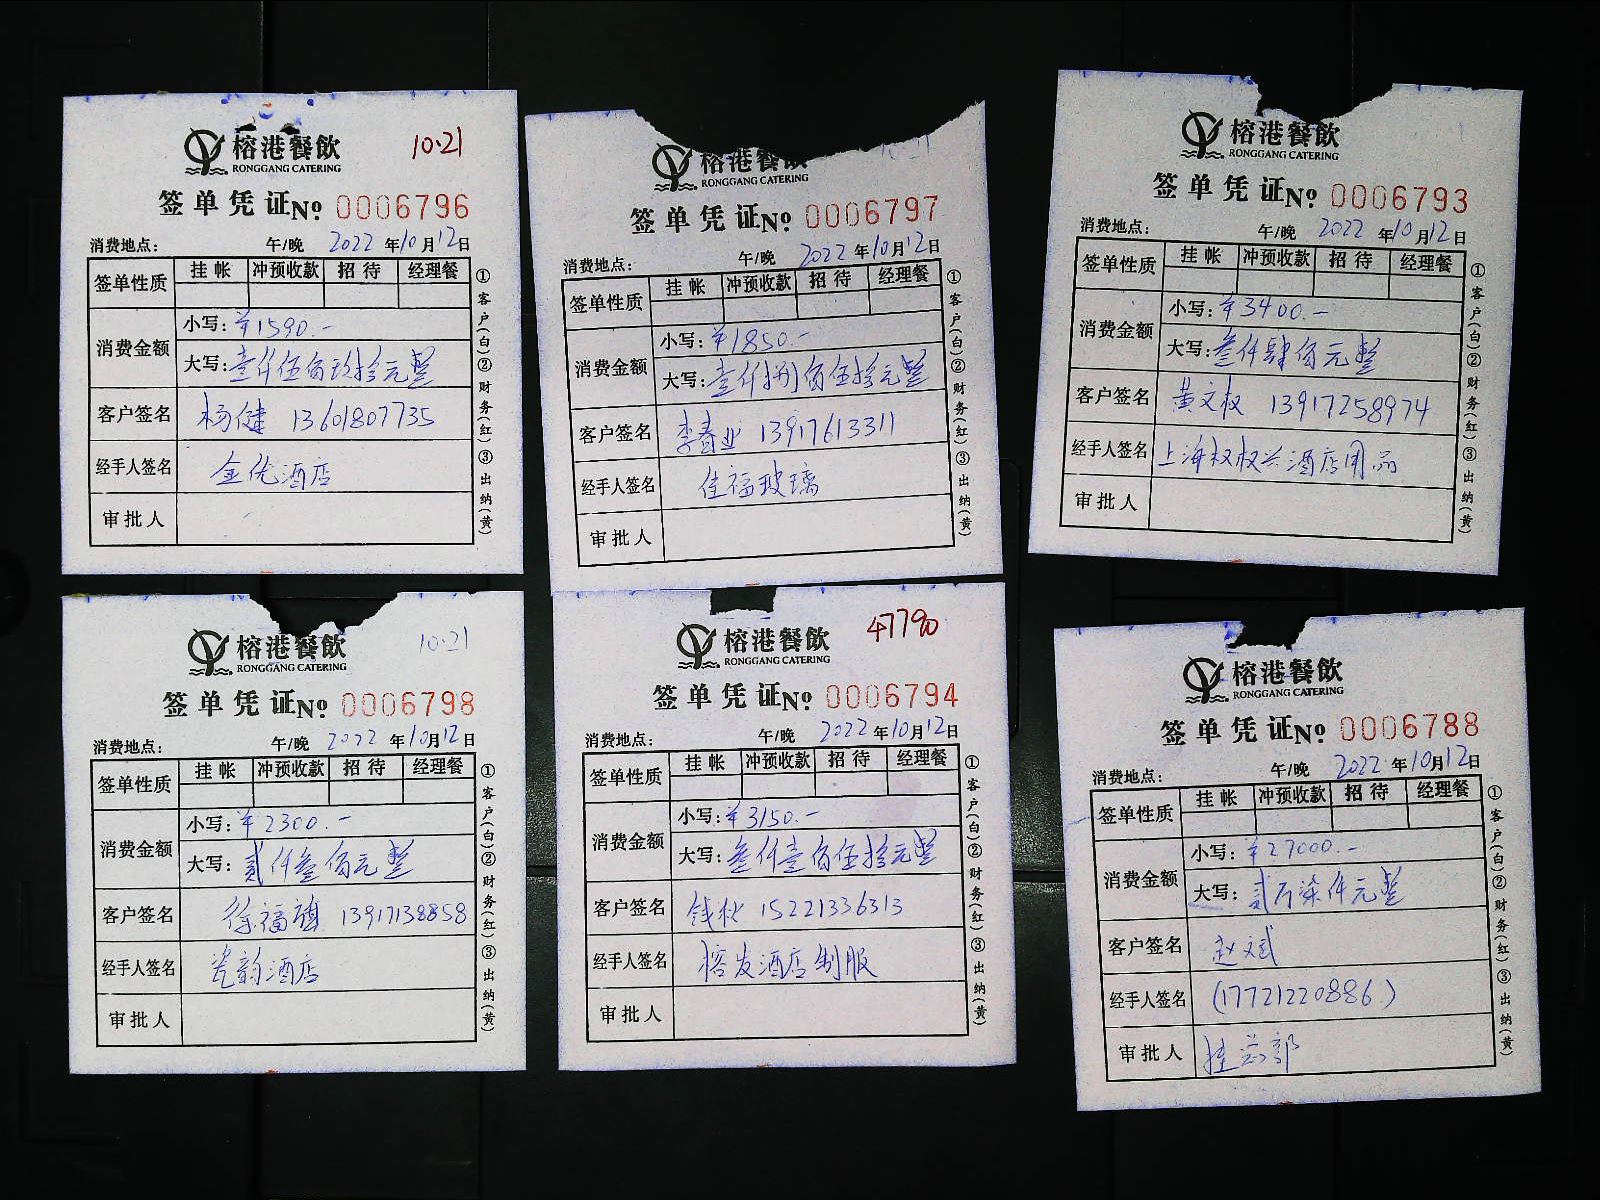 榕港餐飲
RONGGANG CATERING
10.21
签单凭证 No. 0006796
消费地点: 午/晚 2022年10月12日
签单性质 挂帐 冲预收款 招待 经理餐
消费金额 小写: ¥1590.-
大写: 壹仟伍佰玖拾元整
客户签名 杨健 13601807735
经手人签名 金优酒店
审批人
①客户(白)②财务(红)③出纳(黄)
榕港餐飲
RONGGANG CATERING
10.21
签单凭证 No. 0006797
消费地点: 午/晚 2022年10月12日
签单性质 挂帐 冲预收款 招待 经理餐
消费金额 小写: ¥1850.-
大写: 壹仟捌佰伍拾元整
客户签名 李春业 13917613311
经手人签名 佳福玻璃
审批人
①客户(白)②财务(红)③出纳(黄)
榕港餐飲
RONGGANG CATERING
签单凭证 No. 0006793
消费地点: 午/晚 2022年10月12日
签单性质 挂帐 冲预收款 招待 经理餐
消费金额 小写: ¥3400.-
大写: 叁仟肆佰元整
客户签名 黄文权 13917258974
经手人签名 上海权权兴酒店用品
审批人
①客户(白)②财务(红)③出纳(黄)
榕港餐飲
RONGGANG CATERING
10.21
签单凭证 No. 0006798
消费地点: 午/晚 2022年10月12日
签单性质 挂帐 冲预收款 招待 经理餐
消费金额 小写: ¥2300.-
大写: 贰仟叁佰元整
客户签名 徐福 13917138858
经手人签名 瓷韵酒店
审批人
①客户(白)②财务(红)③出纳(黄)
榕港餐飲
RONGGANG CATERING
47790
签单凭证 No. 0006794
消费地点: 午/晚 2022年10月12日
签单性质 挂帐 冲预收款 招待 经理餐
消费金额 小写: ¥3150.-
大写: 叁仟壹佰伍拾元整
客户签名 钱 15221336313
经手人签名 榕发酒店制服
审批人
①客户(白)②财务(红)③出纳(黄)
榕港餐飲
RONGGANG CATERING
签单凭证 No. 0006788
消费地点: 午/晚 2022年10月12日
签单性质 挂帐 冲预收款 招待 经理餐
消费金额 小写: ¥27000.-
大写: 贰万柒仟元整
客户签名 赵斌
经手人签名 (17721220886.)
审批人 挂总部
①客户(白)②财务(红)③出纳(黄)